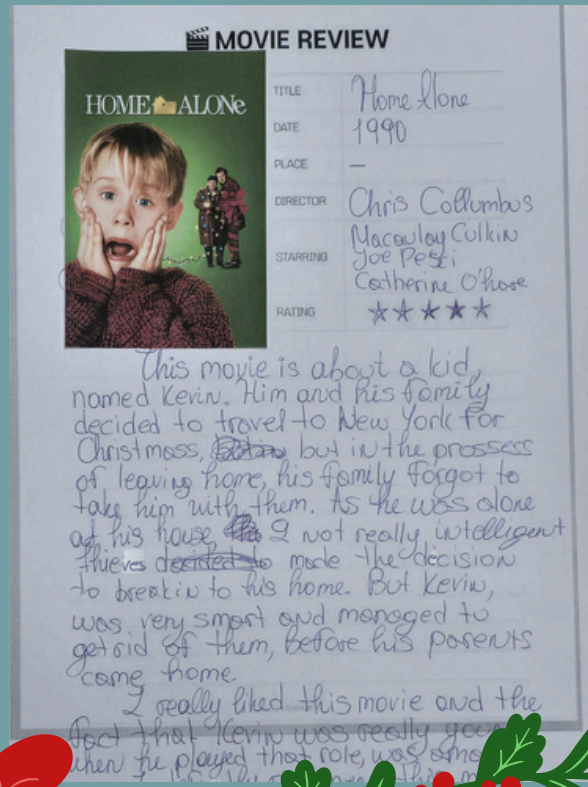 MOVIE REVIEW
HOME ALONe
TITLE Home Alone
DATE 1990
PLACE —
DIRECTOR Chris Collumbus
STARRING Macaulay Culkin
Joe Pesci
Catherine O'hara
RATING ★★★★★
This movie is about a kid,
named Kevin. Him and his family
decided to travel to New York for
Christmass, but in the prossess
of leaving home, his family forgot to
take him with them. As he was alone
at his house, 2 not really intelligent
thieves decided to made the decision
to breakin to his home. But Kevin,
was very smart and managed to
get rid of them, before his parents
came home.
I really liked this movie and the
fact that Kevin was really
when he played that role, was